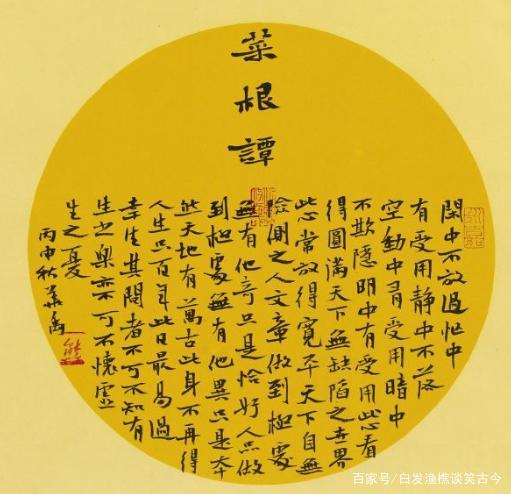 菜根譚
閑中不放過忙中
有受用静中不落
空動中有受用暗中
不欺隱明中有受用此心看
得圓滿天下無缺陷之世界
此心常放得寬平天下自無
險側之人文章做到極處
無有他奇只是恰好人品做
到極處無有他異只是本
然天地有萬古此身不再得
人生只百年此日最易過
幸生其間者不可不知有
生之樂亦不可不懷虛
生之憂
丙申秋
百家号/白发渔樵谈笑古今